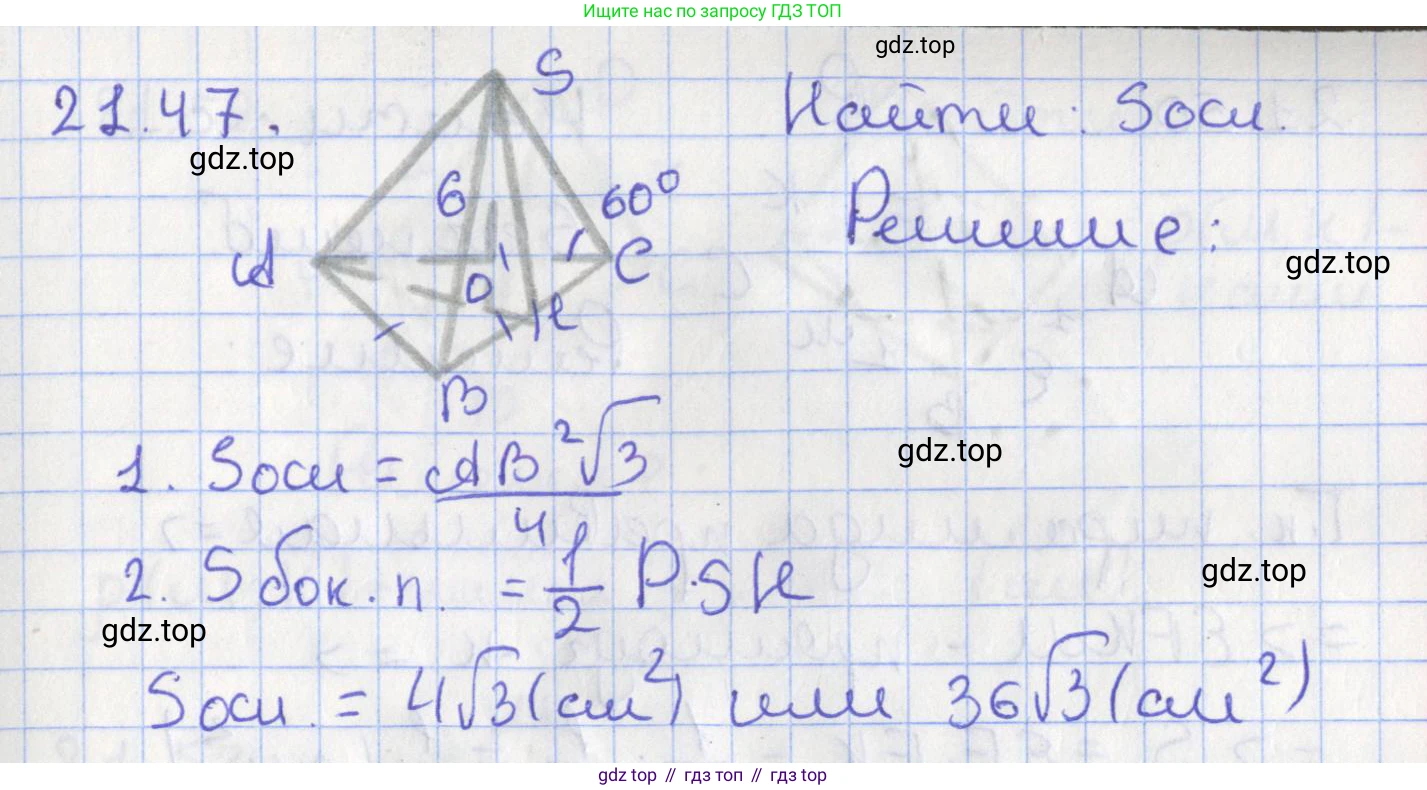 Ищите нас по запросу ГДЗ ТОП
gdz.top
21.47.
S
Найти: Sосн.
gdz.top
6
60°
Решение:
A
O
C
gdz.top
K
B
1. Sосн = AB²√3
4
gdz.top
2. Sбок.п. = 1/2 P·SK
gdz.top
gdz.top
Sосн. = 4√3(см²) или 36√3(см²)
gdz top // гдз топ // gdz top